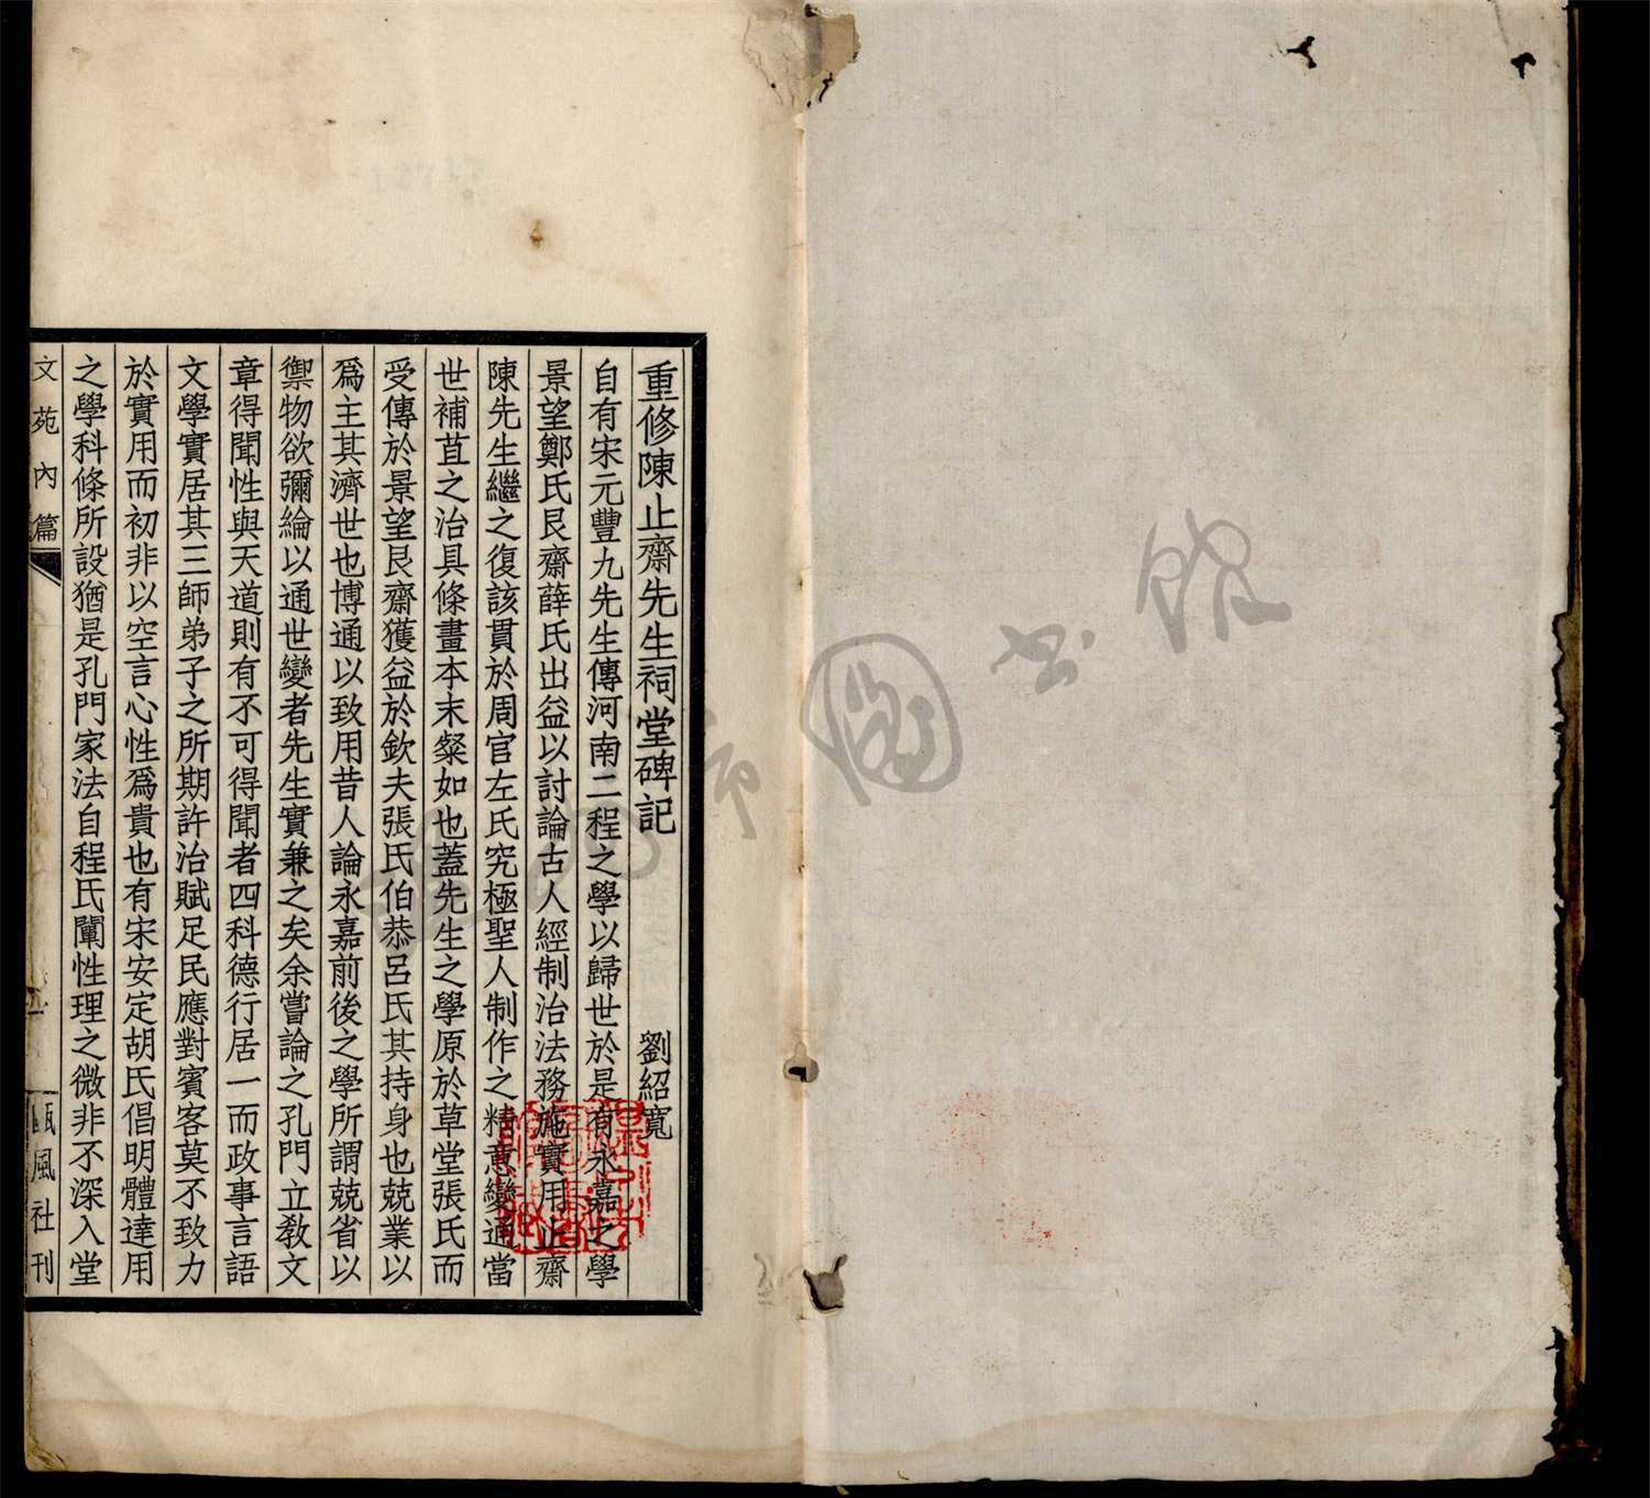 重修陳止齋先生祠堂碑記 劉紹寬
自有宋元豐九先生傳河南二程之學以歸世於是有永嘉之學
景望鄭氏艮齋薛氏出益以討論古人經制治法務施實用止齋
陳先生繼之復該貫於周官左氏究極聖人制作之精意變通當
世補苴之治具條畫本末粲如也蓋先生之學原於草堂張氏而
受傳於景望艮齋獲益於欽夫張氏伯恭呂氏其持身也兢業以
爲主其濟世也博通以致用昔人論永嘉前後之學所謂兢省以
禦物欲彌綸以通世變者先生實兼之矣余嘗論之孔門立教文
章得聞性與天道則有不可得聞者四科德行居一而政事言語
文學實居其三師弟子之所期許治賦足民應對賓客莫不致力
於實用而初非以空言心性爲貴也有宋安定胡氏倡明體達用
之學科條所設猶是孔門家法自程氏闡性理之微非不深入堂
文苑內篇
甌風社刊
市圖書館